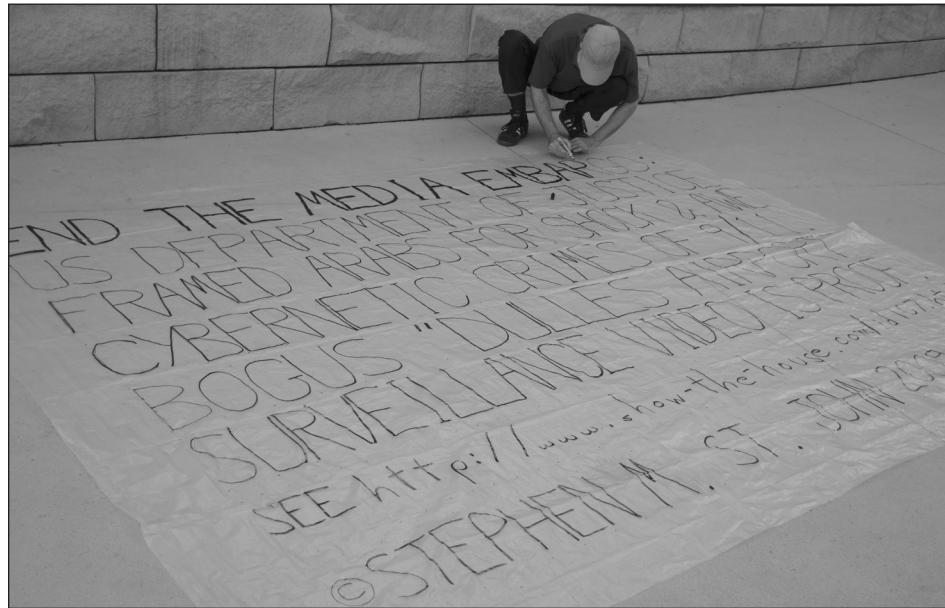 END THE MEDIA EMBARGO:
US DEPARTMENT OF JUSTICE
FRAMED ARABS FOR SHOCK & AWE
CYBERNETIC CRIMES OF 9/11.
BOGUS "DULLES AIRPORT
SURVEILLANCE VIDEO IS PROOF.
SEE http://www.show-the-house.com/
© STEPHEN M. ST. JOHN 2009